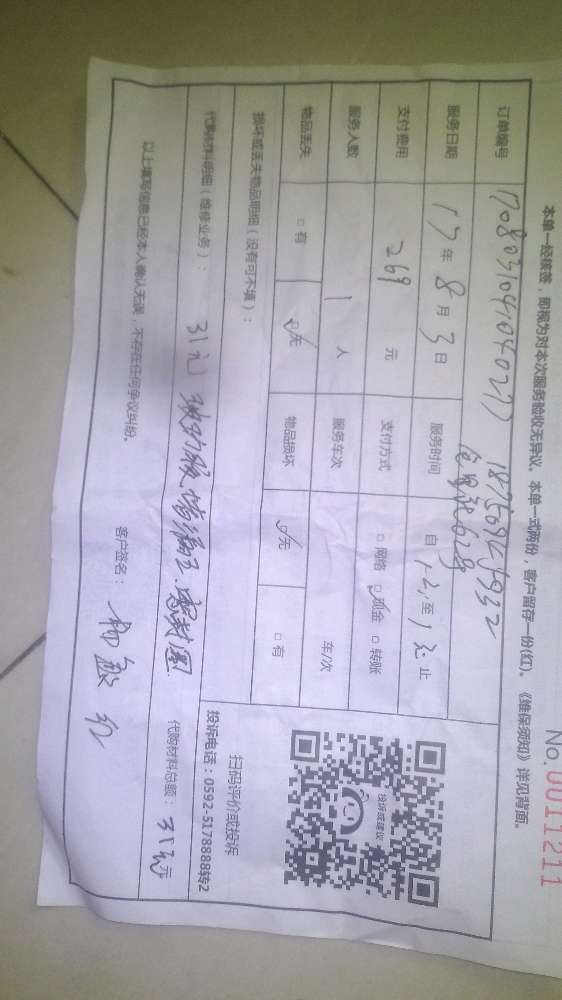 No.0011211
本单一经核签，即视为对本次服务验收无异议。本单一式两份，客户留存一份(红)。《维保须知》详见背面。
订单编号 170803104104027
服务日期 17年8月3日 服务时间 自 至 止
支付费用 269 元 支付方式 □网络 ☑现金 □转账
服务人数 1 人 服务车次 车/次
物品丢失 □有 ☑无 物品损坏 ☑无 □有
损坏或丢失物品明细（没有可不填）：
投诉或建议
扫码评价或投诉
投诉电话：0592-5178888转2
代购材料明细（维修业务）： 31元 玻璃胶 密封圈
代购材料总额： 31元
以上填写信息已经本人确认无误，不存在任何争议纠纷。
客户签名：